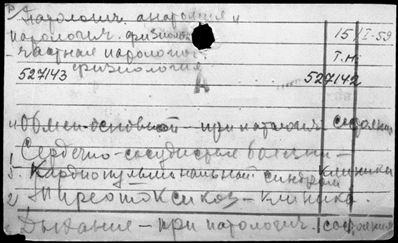 Патологич. анатомия и
патологич. физиолог.
15 I-59
- частная патологич.
Т.Н.
физиология
527143
527142
А
Обмен основной - при патологич. состояни
1, Сердечно-сосудистые болезни -
5. Кардиопульмональный синдром клиника
2, Тиреотоксикоз - клиника.
Дыхание - при патологич. состояния